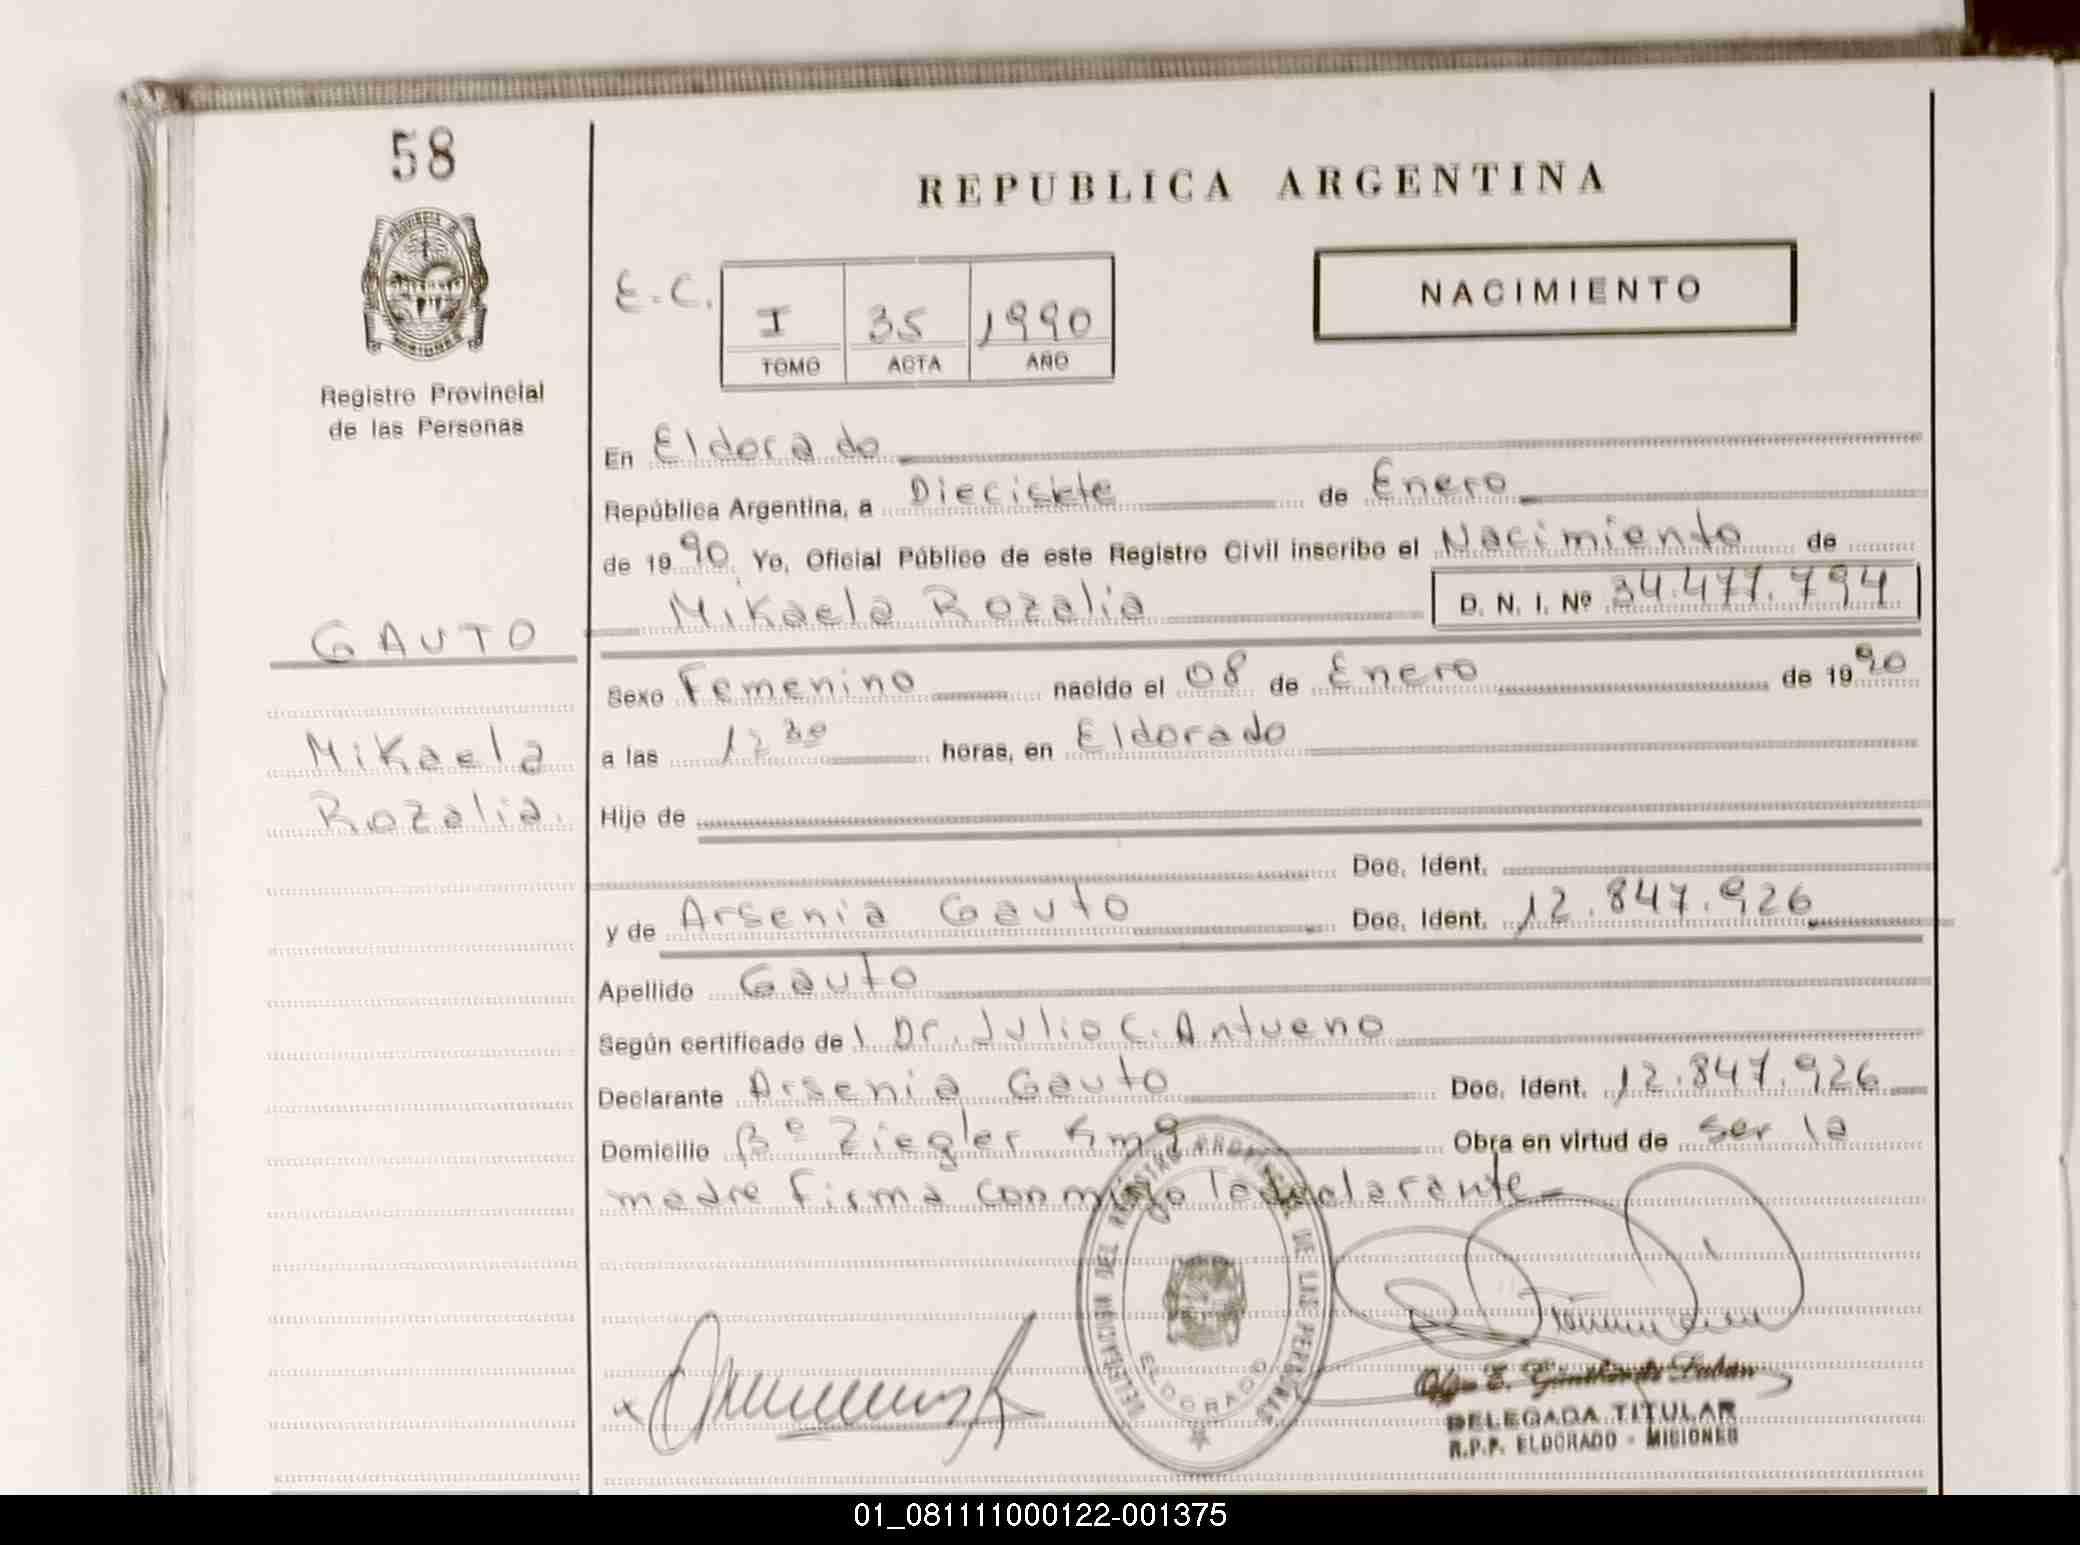 58
REPUBLICA ARGENTINA
PROVINCIA DE
MISIONES
Registro Provincial
de las Personas
E.C.
I 35 1990
TOMO ACTA AÑO
NACIMIENTO
En Eldorado
República Argentina, a Diecisiete de Enero
de 1990 Yo, Oficial Público de este Registro Civil inscribo el Nacimiento de
Mikaela Rozalia D. N. I. Nº 34.477.794
GAUTO
Sexo Femenino nacido el 08 de Enero de 1990
Mikaela
a las 12 30 horas, en Eldorado
Rozalia.
Hijo de
Doc. Ident.
y de Arsenia Gauto Doc. Ident. 12.847.926
Apellido Gauto
Según certificado de l Dr. Julio C. Antueno
Declarante Arsenia Gauto Doc. Ident. 12.847.926
Domicilio Bº Ziegler Km 9 Obra en virtud de ser la
madre firma conmigo la declarante
DELEGACION DEL REGISTRO PROVINCIAL DE LAS PERSONAS
ELDORADO
DELEGADA TITULAR
R.P.P. ELDORADO - MISIONES
01_081111000122-001375